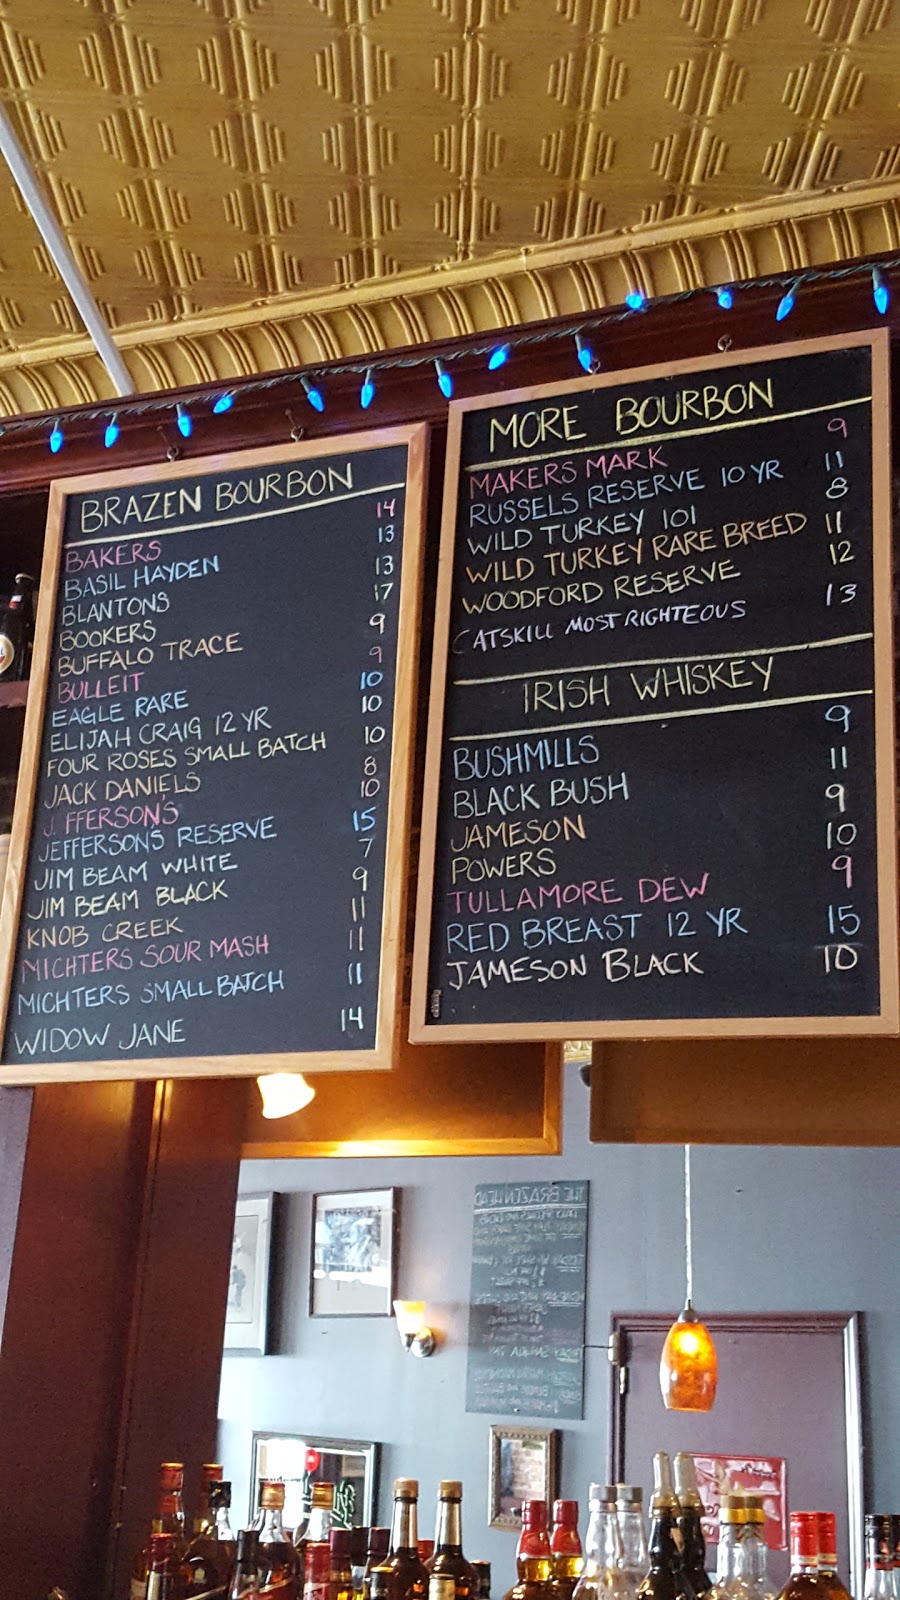 BRAZEN BOURBON
BAKERS 14
BASIL HAYDEN 13
BLANTONS 13
BOOKERS 17
BUFFALO TRACE 9
BULLEIT 9
EAGLE RARE 10
ELIJAH CRAIG 12 YR 10
FOUR ROSES SMALL BATCH 10
JACK DANIELS 8
J. FFERSON'S 10
JEFFERSONS RESERVE 15
JIM BEAM WHITE 7
JIM BEAM BLACK 9
KNOB CREEK 11
MICHTERS SOUR MASH 11
MICHTERS SMALL BATCH 11
WIDOW JANE 14
MORE BOURBON
MAKERS MARK 9
RUSSELS RESERVE 10 YR 11
WILD TURKEY 101 8
WILD TURKEY RARE BREED 11
WOODFORD RESERVE 12
CATSKILL MOST RIGHTEOUS 13
IRISH WHISKEY
BUSHMILLS 9
BLACK BUSH 11
JAMESON 9
POWERS 10
TULLAMORE DEW 9
RED BREAST 12 YR 15
JAMESON BLACK 10
THE BRAZEN HEAD